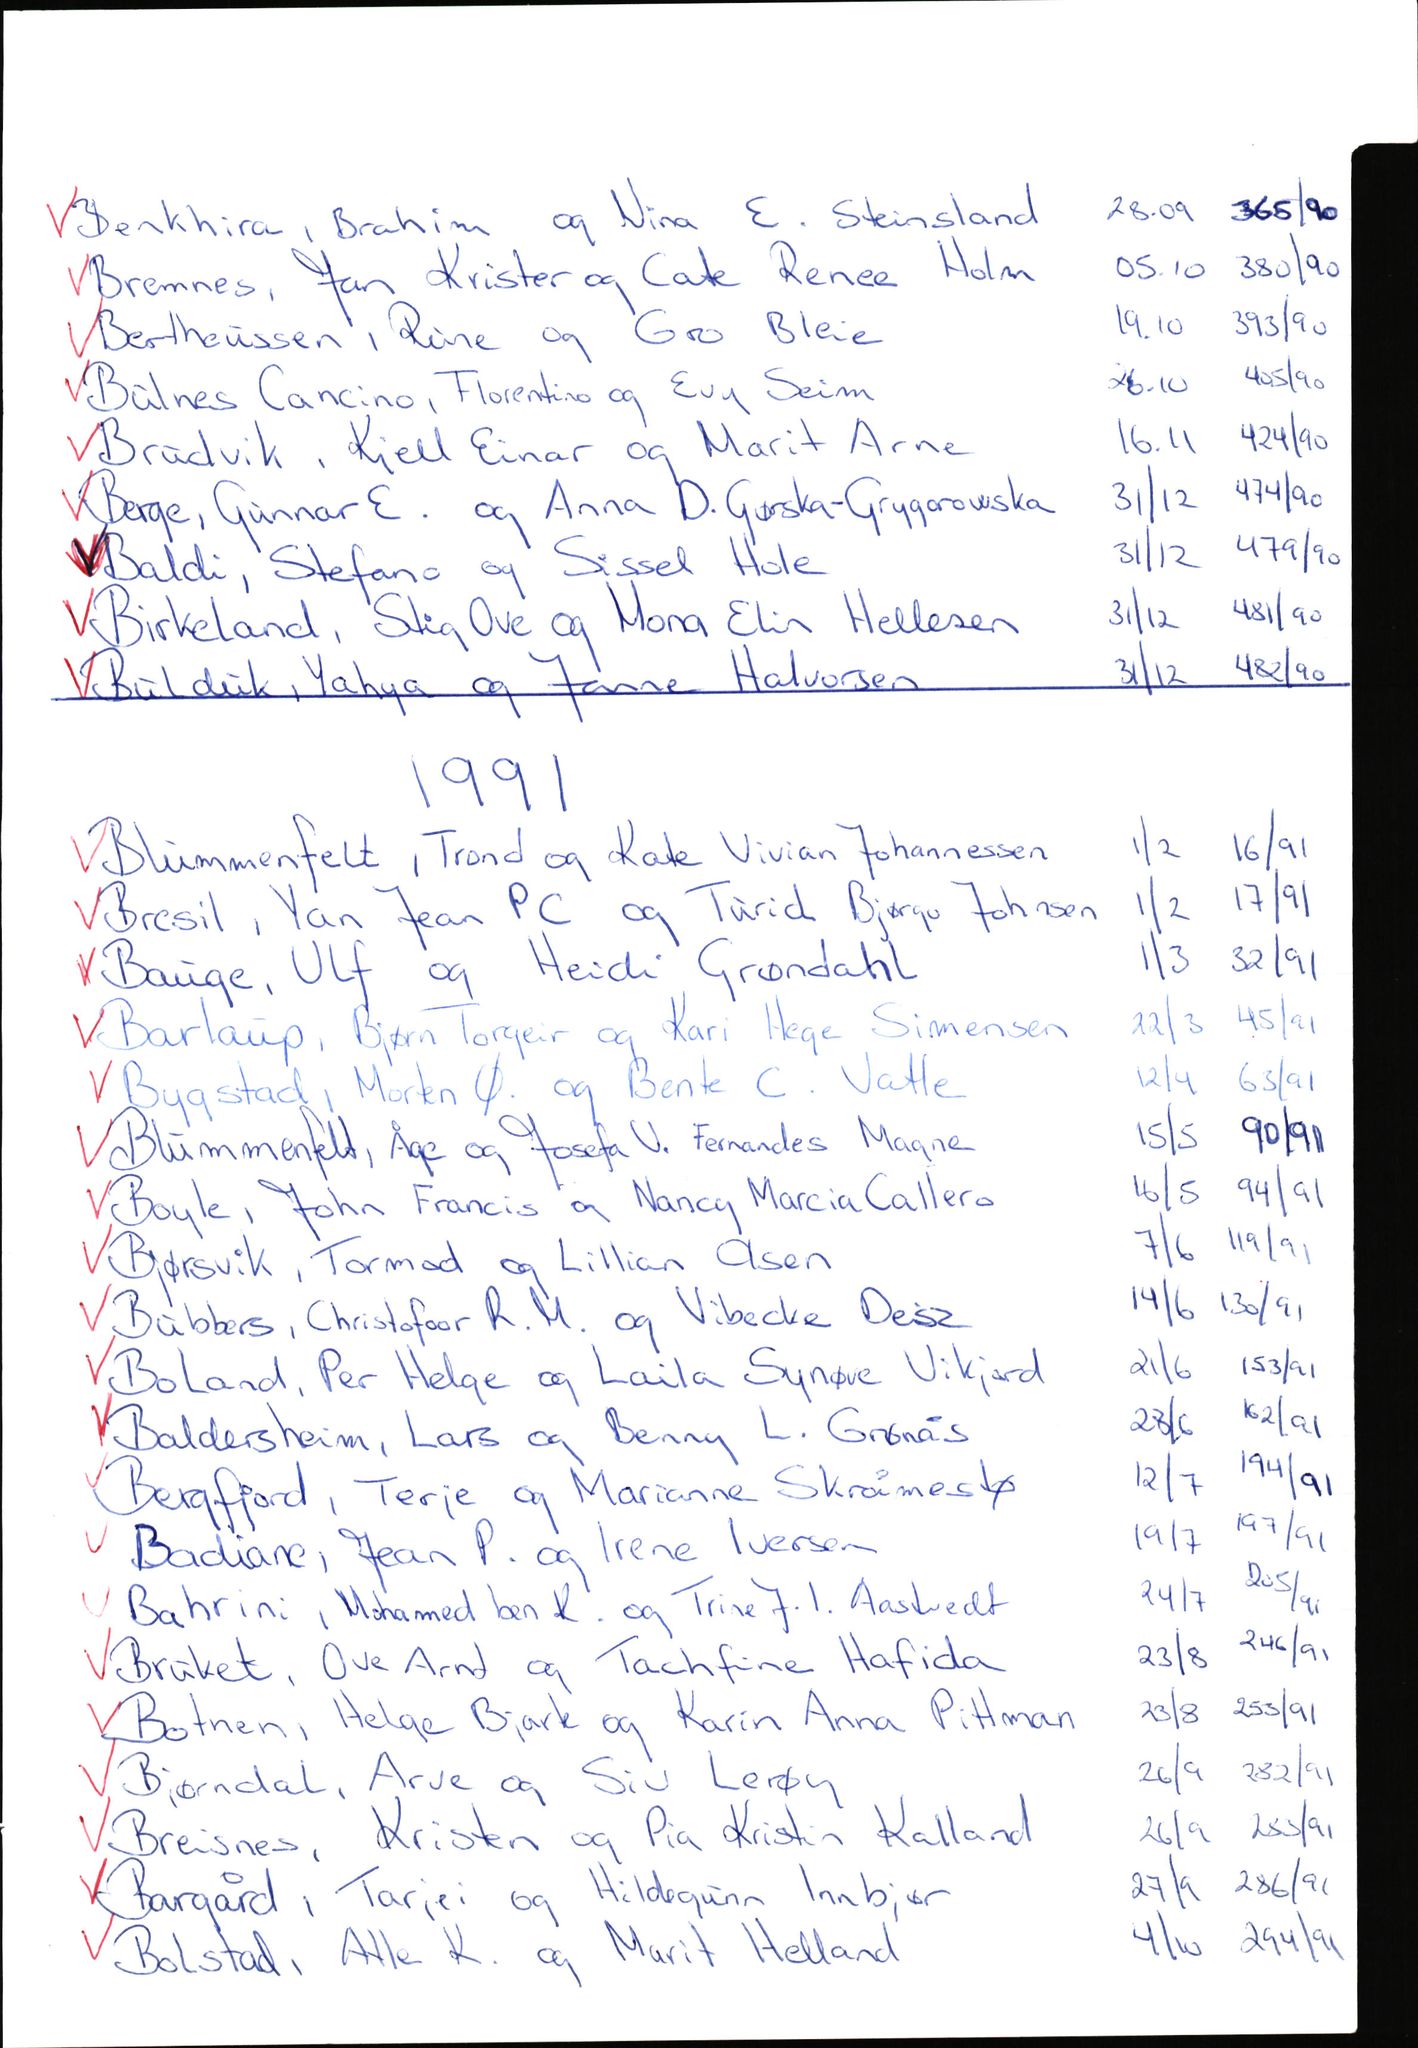 Benkhira, Brahim og Nina E. Steinsland 28.09 365/90
Bremnes, Jan Krister og Cate Renee Holm 05.10 380/90
Bertheussen, Rune og Gro Bleie 19.10 393/90
Bulnes Cancino, Florentino og Evy Seim 26.10 405/90
Brudvik, Kjell Einar og Marit Arne 16.11 424/90
Berge, Gunnar E. og Anna D. Gørska-Grygorowska 31/12 474/90
Baldi, Stefano og Sissel Hole 31/12 479/90
Birkeland, Stig Ove og Mona Elin Hellesen 31/12 481/90
Bulduk, Yahya og Janne Halvorsen 31/12 482/90
1991
Blummenfelt, Trond og Kate Vivian Johannessen 1/2 16/91
Bresil, Yan Jean PC og Turid Bjørgo Johnsen 1/2 17/91
Bauge, Ulf og Heidi Grøndahl 1/3 32/91
Barlaup, Bjørn Torgeir og Kari Hege Simensen 22/3 45/91
Bygstad, Morten Ø. og Bente C. Vatle 12/4 63/91
Blummenfelt, Åge og Josefa V. Fernandes Magne 15/5 90/91
Boyle, John Francis og Nancy Marcia Callero 16/5 94/91
Bjørsvik, Tormod og Lillian Olsen 7/6 119/91
Bubbers, Christofoor R.M. og Vibecke Deisz 14/6 130/91
Boland, Per Helge og Laila Synøve Vikjord 21/6 153/91
Baldersheim, Lars og Benny L. Grønås 28/6 162/91
Bergfjord, Terje og Marianne Skråmestø 12/7 194/91
Badiane, Jean P. og Irene Iversen 19/7 197/91
Bahrini, Mohamed ben K. og Trine J.I. Aastvedt 24/7 205/91
Bruket, Ove Arnt og Tachfine Hafida 23/8 246/91
Botnen, Helge Bjarte og Karin Anna Pittman 23/8 253/91
Bjørndal, Arve og Siv Lerøy 26/9 282/91
Breisnes, Kristen og Pia Kristin Kalland 26/9 283/91
Bargård, Tarjei og Hildegunn Innbjør 27/9 286/91
Bolstad, Atle K. og Marit Helland 4/10 294/91